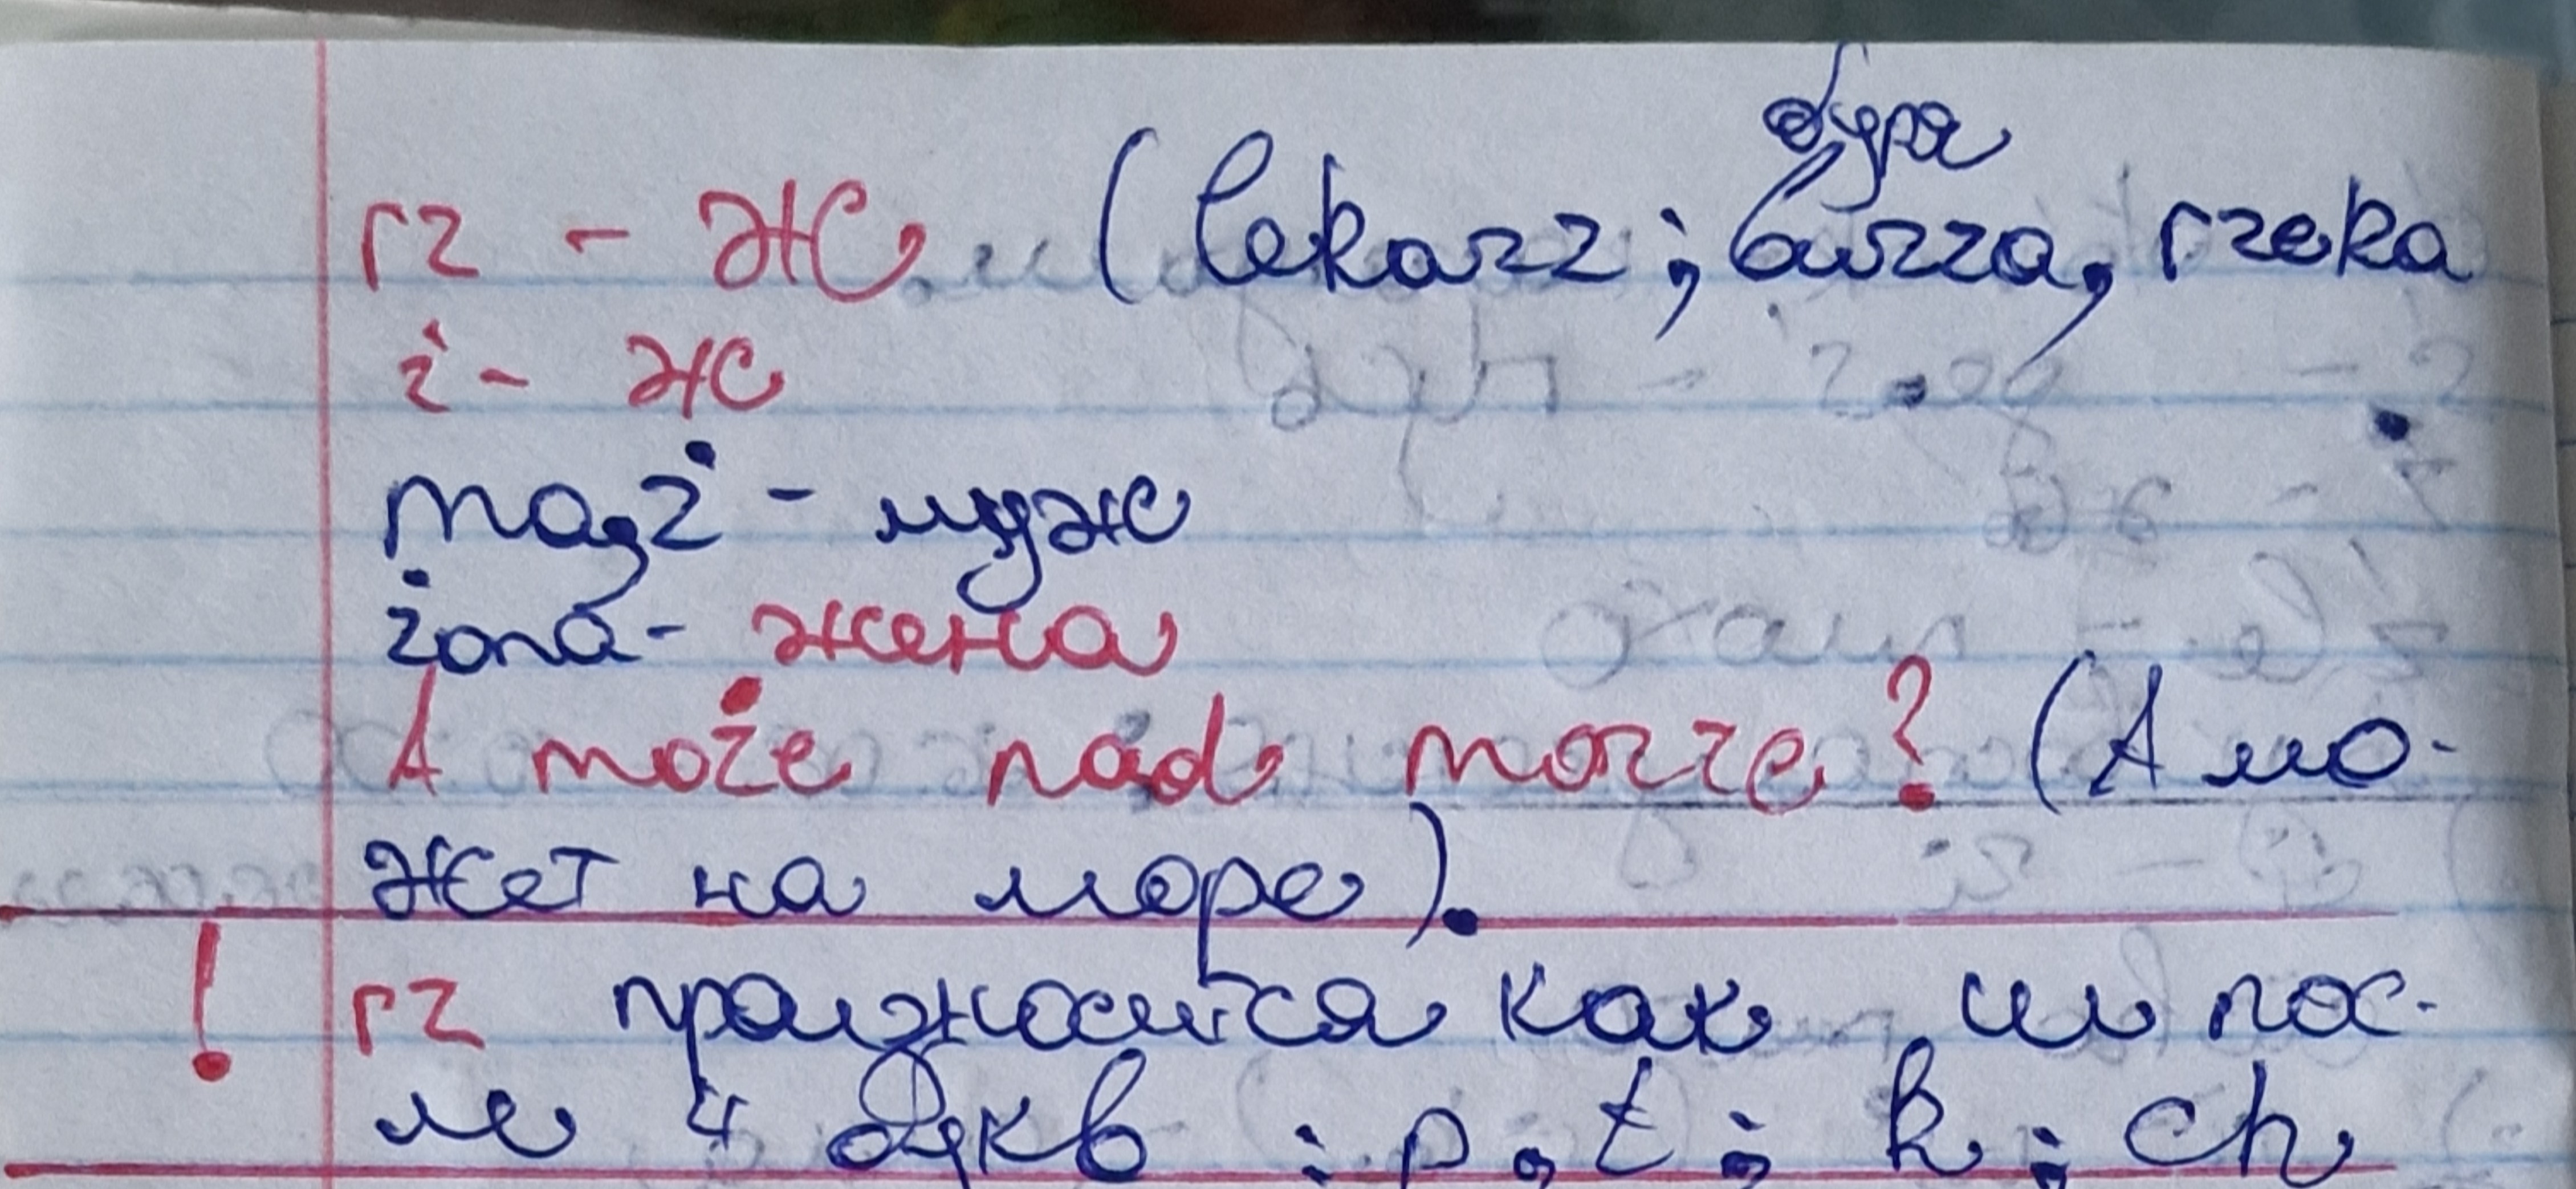 буря
rz - Ж (lekarz; burza, rzeka
ż - ж
mąż - муж
żona - жена
A może nad morze? (А мо-
жет на море).
! rz произносится как ш пос-
ле 4 букв: p, t; k; ch